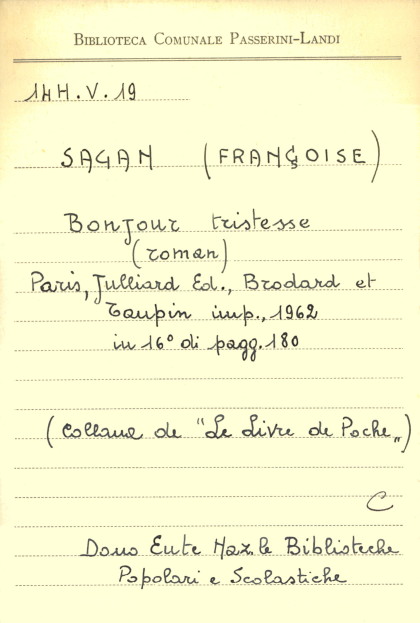 BIBLIOTECA COMUNALE PASSERINI-LANDI
14H.V.19
SAGAN (FRANÇOISE)
Bonjour tristesse
(roman)
Paris, Julliard Ed., Brodard et
Taupin imp., 1962
in 16° di pagg. 180
(Collana de "Le Livre de Poche„)
C
Dono Ente Naz.le Biblioteche
Popolari e Scolastiche